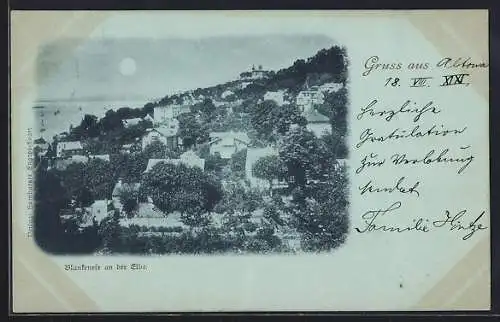 Gruss aus Altona
18. VIII. XIX.
Herzliche
Gratulation
zur Verlobung
sendet
Familie Hintze
Blankenese an der Elbe.